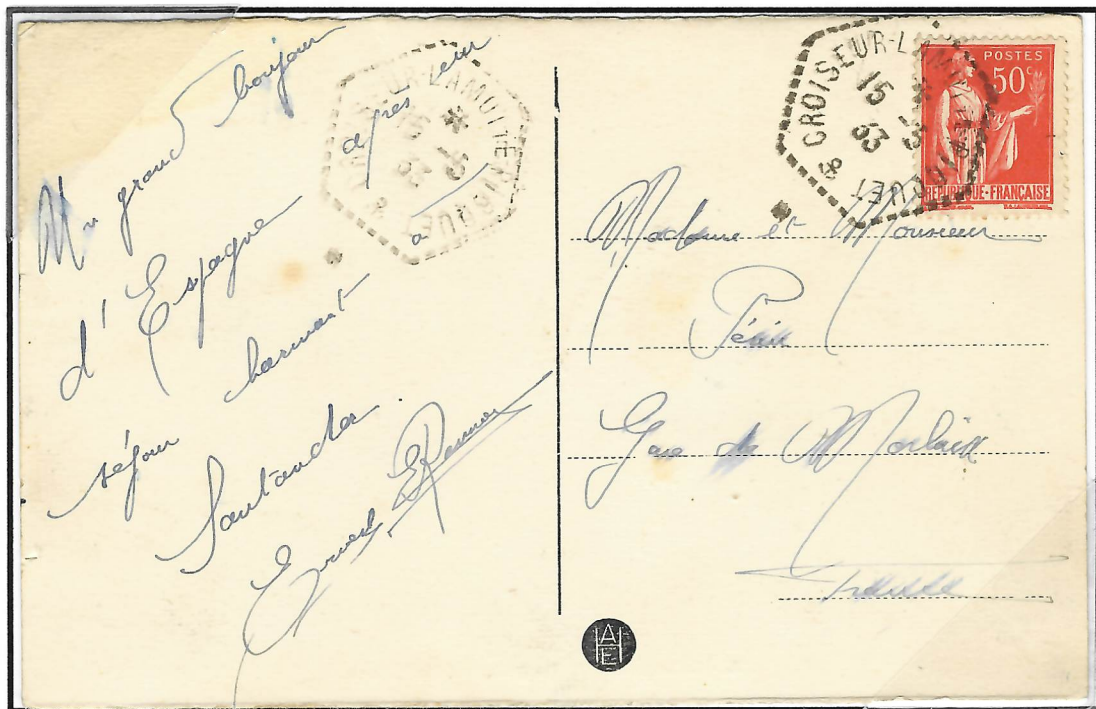 Un grand bonjour
d'Espagne après
séjour charmant à
Santander
Ernest
CROISEUR-LAMOTTE-PICQUET
15
33
CROISEUR-LAMOTTE-PICQUET
15
33
POSTES
50c
REPUBLIQUE-FRANÇAISE
Madame et Monsieur
Gare de Morlaix
AHE